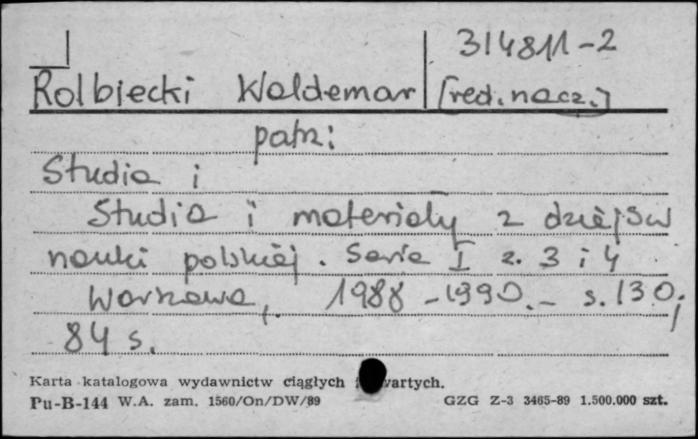 314811-2
Rolbiecki Waldemar [red. nacz.]
patrz:
Studia i
Studia i materiały z dziejów
nauki polskiej. Seria I z. 3 i 4
Warszawa, 1988-1990.- s. 130;
84 s.
Karta katalogowa wydawnictw ciągłych i otwartych.
Pu-B-144 W.A. zam. 1560/On/DW/89 GZG Z-3 3465-89 1.500.000 szt.